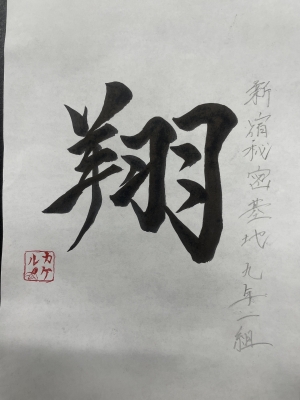 翔
新宿秘密基地 九年二組
カケル